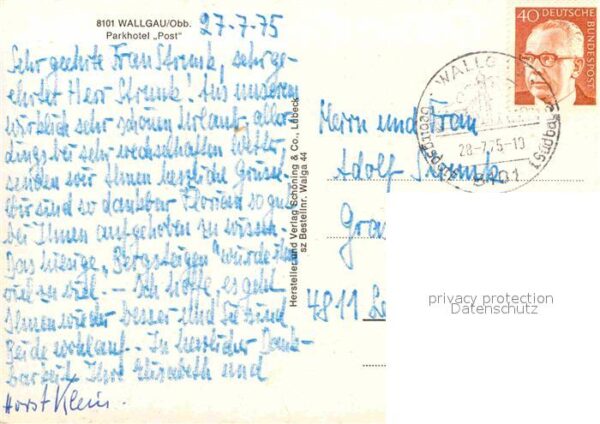 8101 WALLGAU/Obb.
Parkhotel „Post"
27-7-75
Sehr geehrte Frau Strunk, sehr ge-
ehrter Herr Strunk! Aus unserem
wirklich sehr schönen Urlaub, aller
dings bei sehr wechselhaftem Wetter,
senden wir Ihnen herzliche Grüsse.
Wir sind so dankbar Florian so gut
bei Ihnen aufgehoben zu wissen.
Das hiesige „Bergsteigen" wurde ihm
viel zu viel. - Ich hoffe, es geht
Ihnen wieder besser und Sie sind
Beide wohlauf. - In herzlicher Dank-
barkeit Ihre Elisabeth und
Horst Klein.
Hersteller und Verlag Schöning & Co., Lübeck
sz Bestellnr. Walga 44
40 DEUTSCHE
BUNDESPOST
WALLGAU
28-7.75-19
8101
Herrn und Frau
Adolf Strunk
4811
privacy protection
Datenschutz